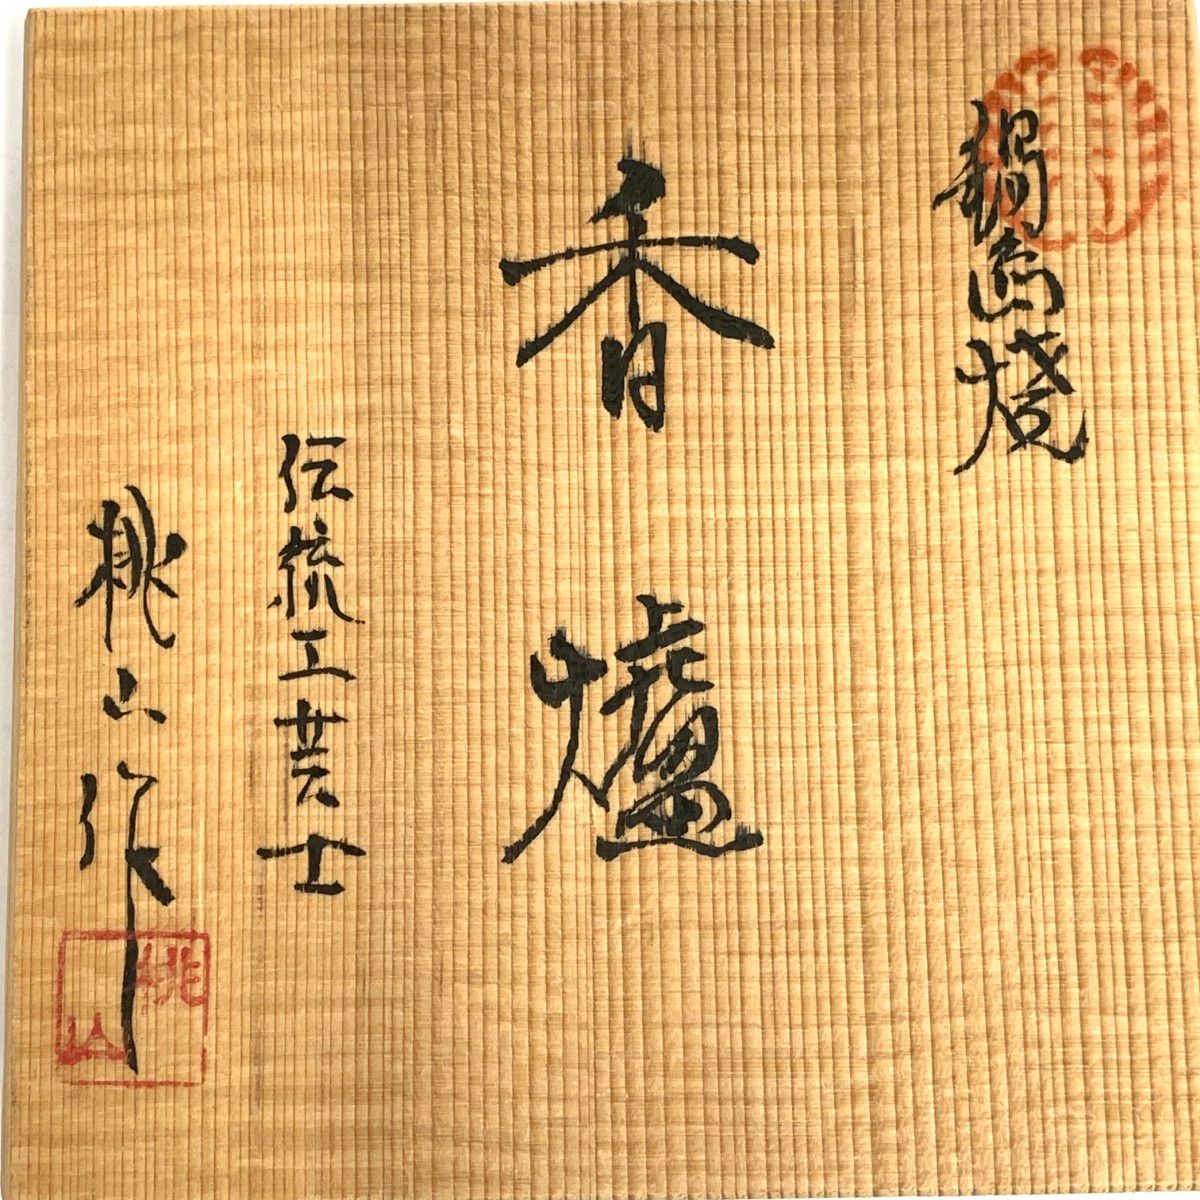 鍋島焼
香爐
伝統工芸士
桃山作
桃山